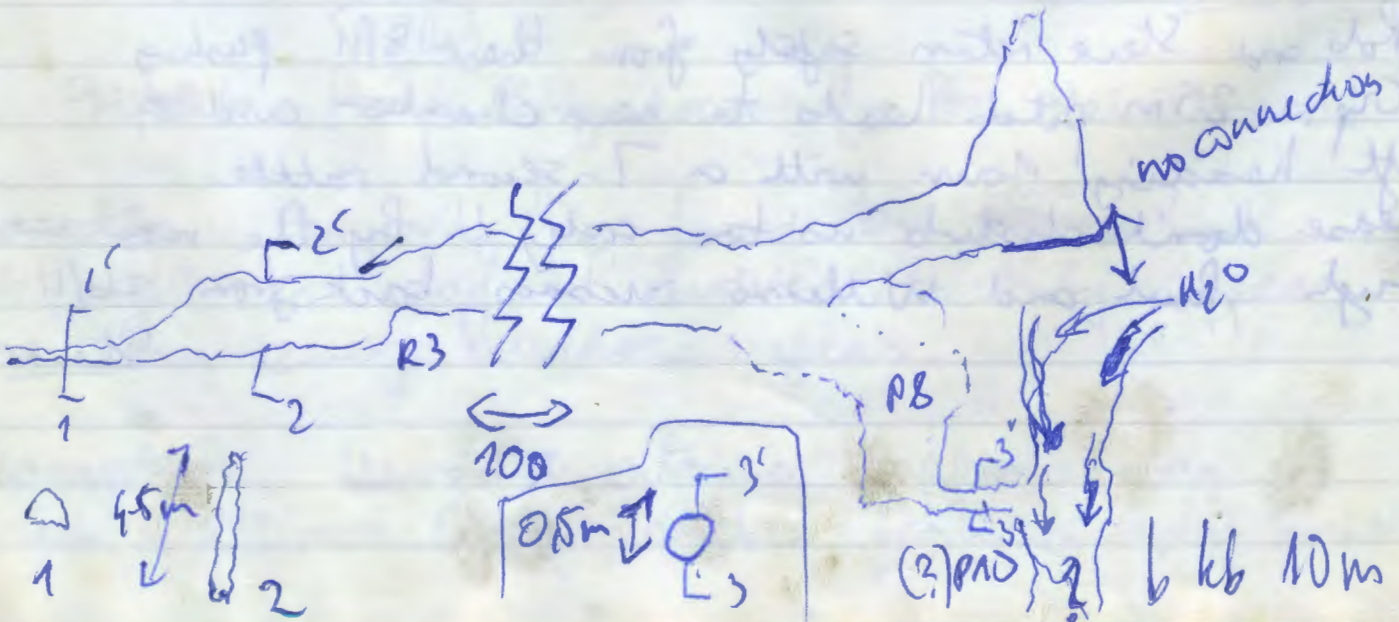 no connection
H2O
1' 2'
R3
1 2
100
P8
3'
3
1 4.5m 2
0,5m 3'
3
(?) P10 ? kb 10m